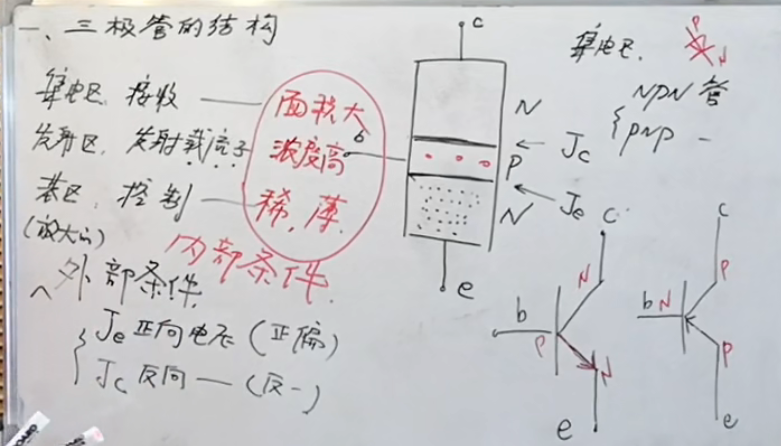 一、三极管的结构
集电区 接收 —— 面积大
发射区、发射载流子 浓度高
基区、控制 —— 稀,薄
(放大的)
内部条件.
外部条件
Je 正向电压 (正偏)
Jc 反向 — (反一)
c
b
N
P
N
← Jc
← Je
e
集电区.
P
N
NPN 管
PNP —
c
N
b
P
N
e
c
P
b N
P
e